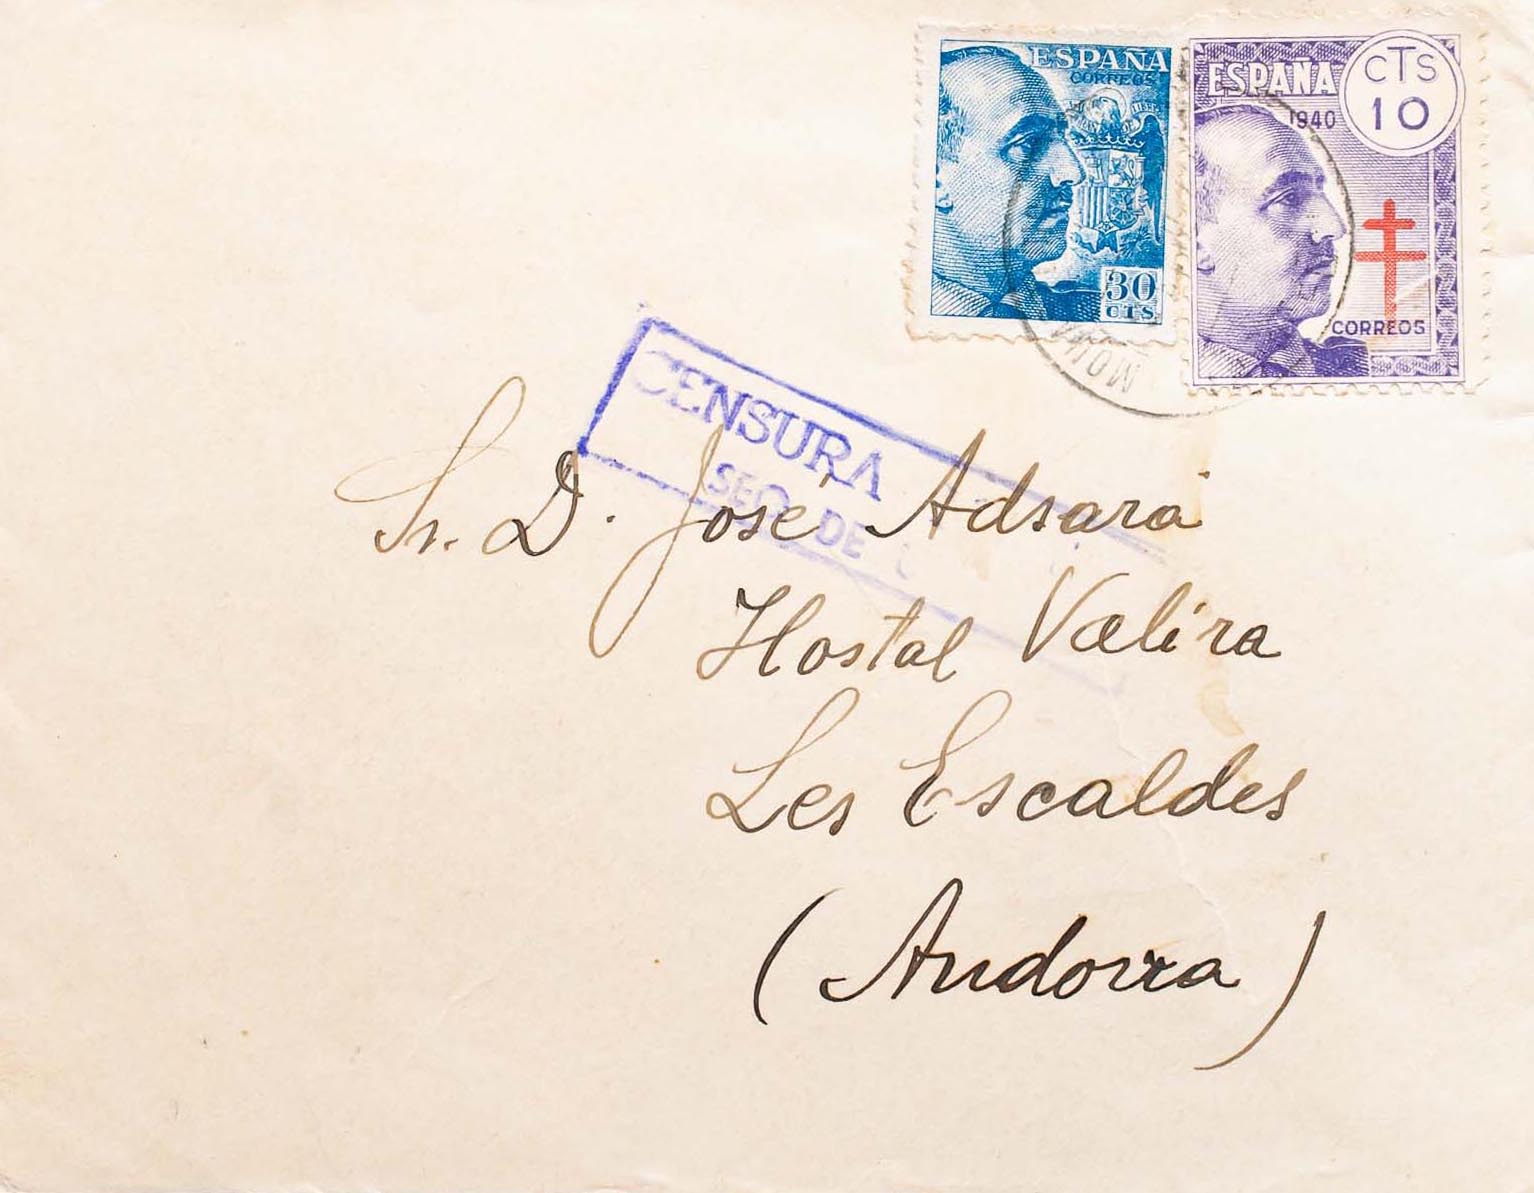 ESPAÑA
CORREOS
30
CTS
ESPAÑA
CTS
10
1940
CORREOS
CENSURA
DE
Sr. D. José Adsará
Hostal Valira
Les Escaldes
(Andorra)